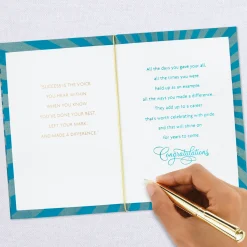 SUCCESS IS THE VOICE
YOU HEAR WITHIN
WHEN YOU KNOW
YOU'VE DONE YOUR BEST,
LEFT YOUR MARK,
AND MADE A DIFFERENCE.
All the days you gave your all,
all the times you were
held up as an example,
all the ways you made a difference...
They add up to a career
that's worth celebrating with pride
and that will shine on
for years to come.
Congratulations